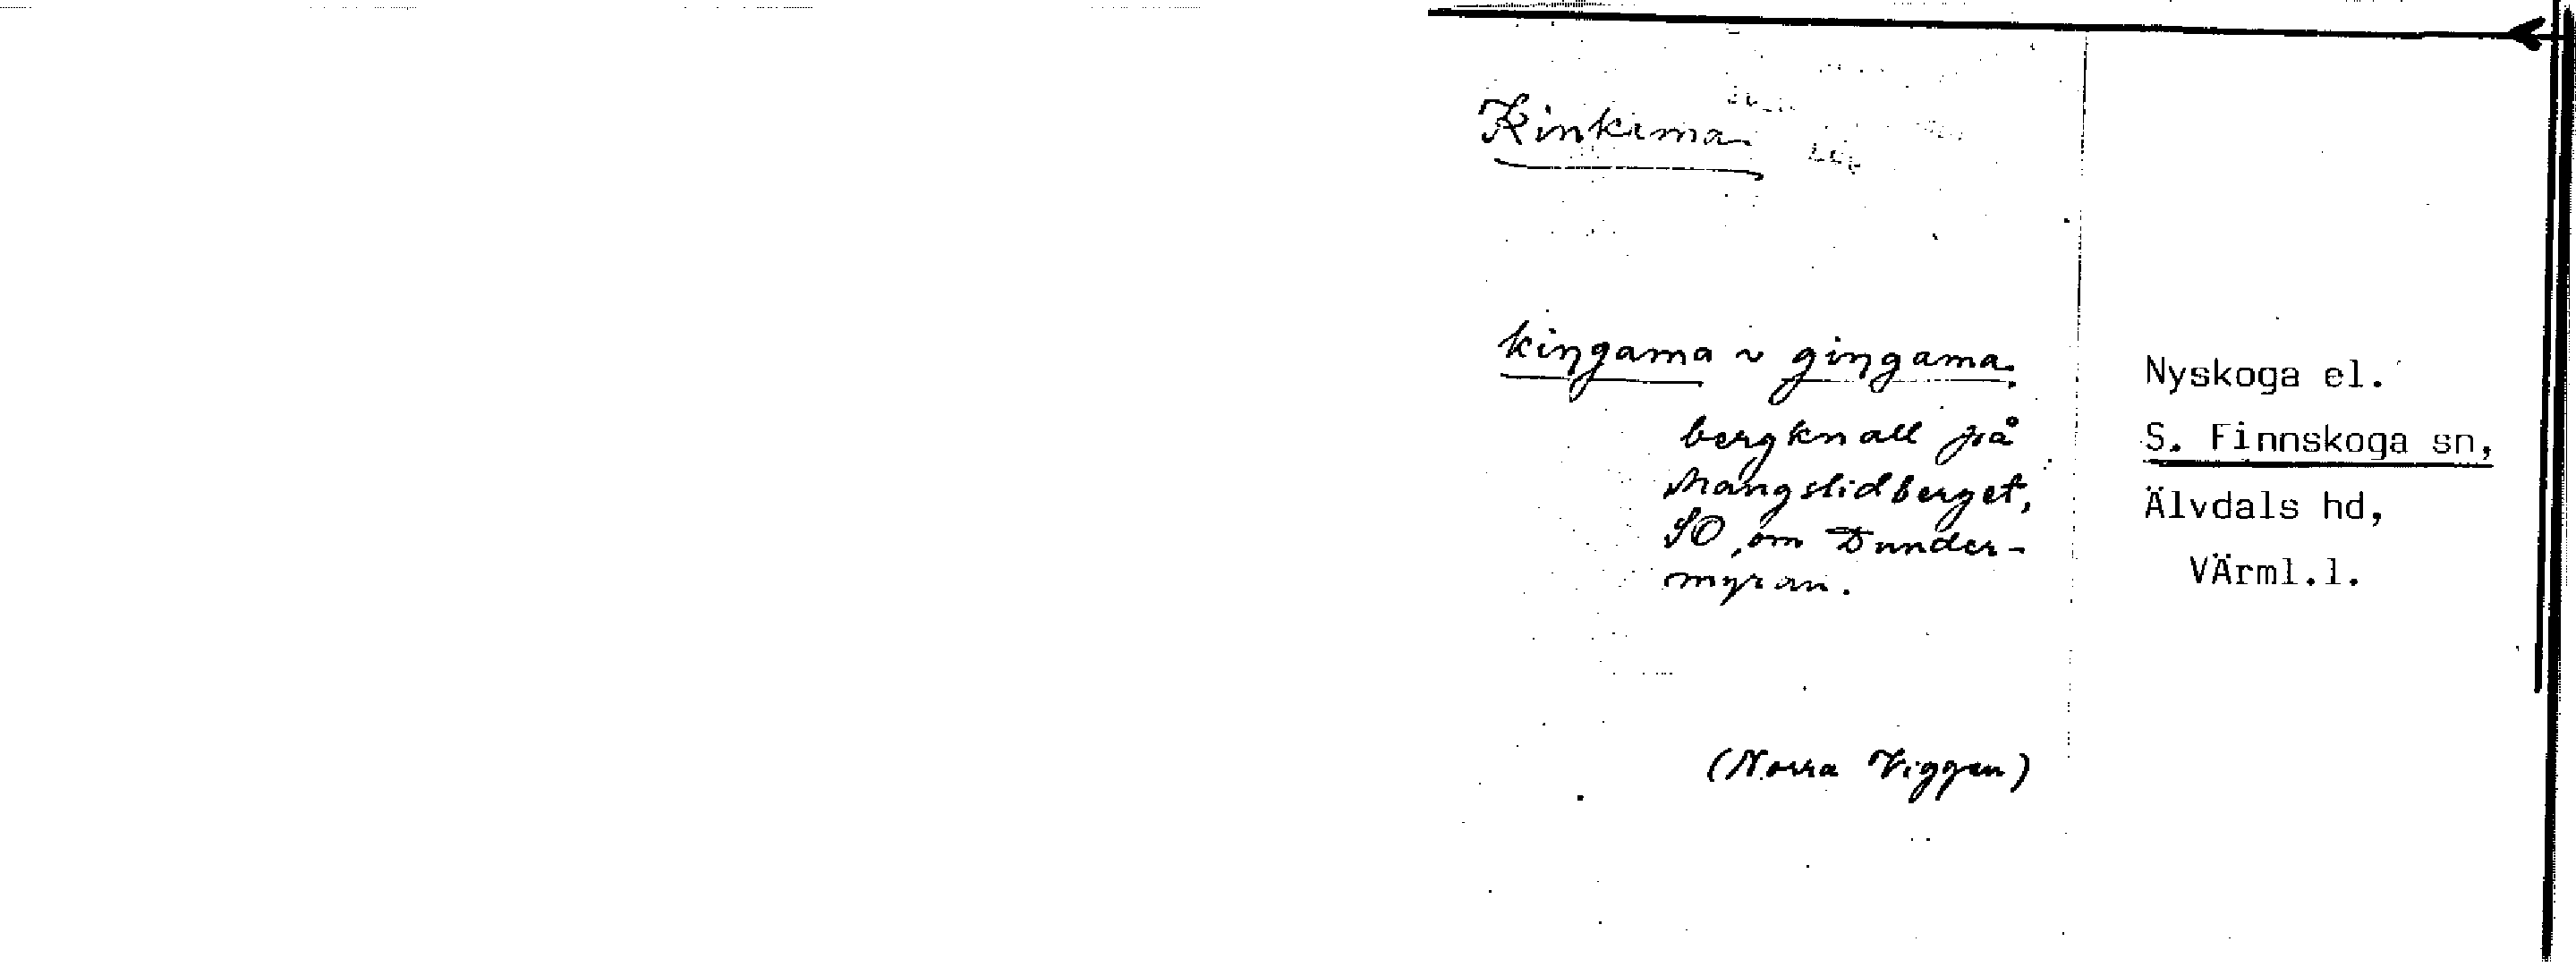 Kinkama
kiŋgama ~ giŋgama.
bergknall på
Mangslidberget,
SO om Dunder-
myran.
(Norra Viggen)
Nyskoga el.
S. Finnskoga sn,
Älvdals hd,
VÄrml.l.